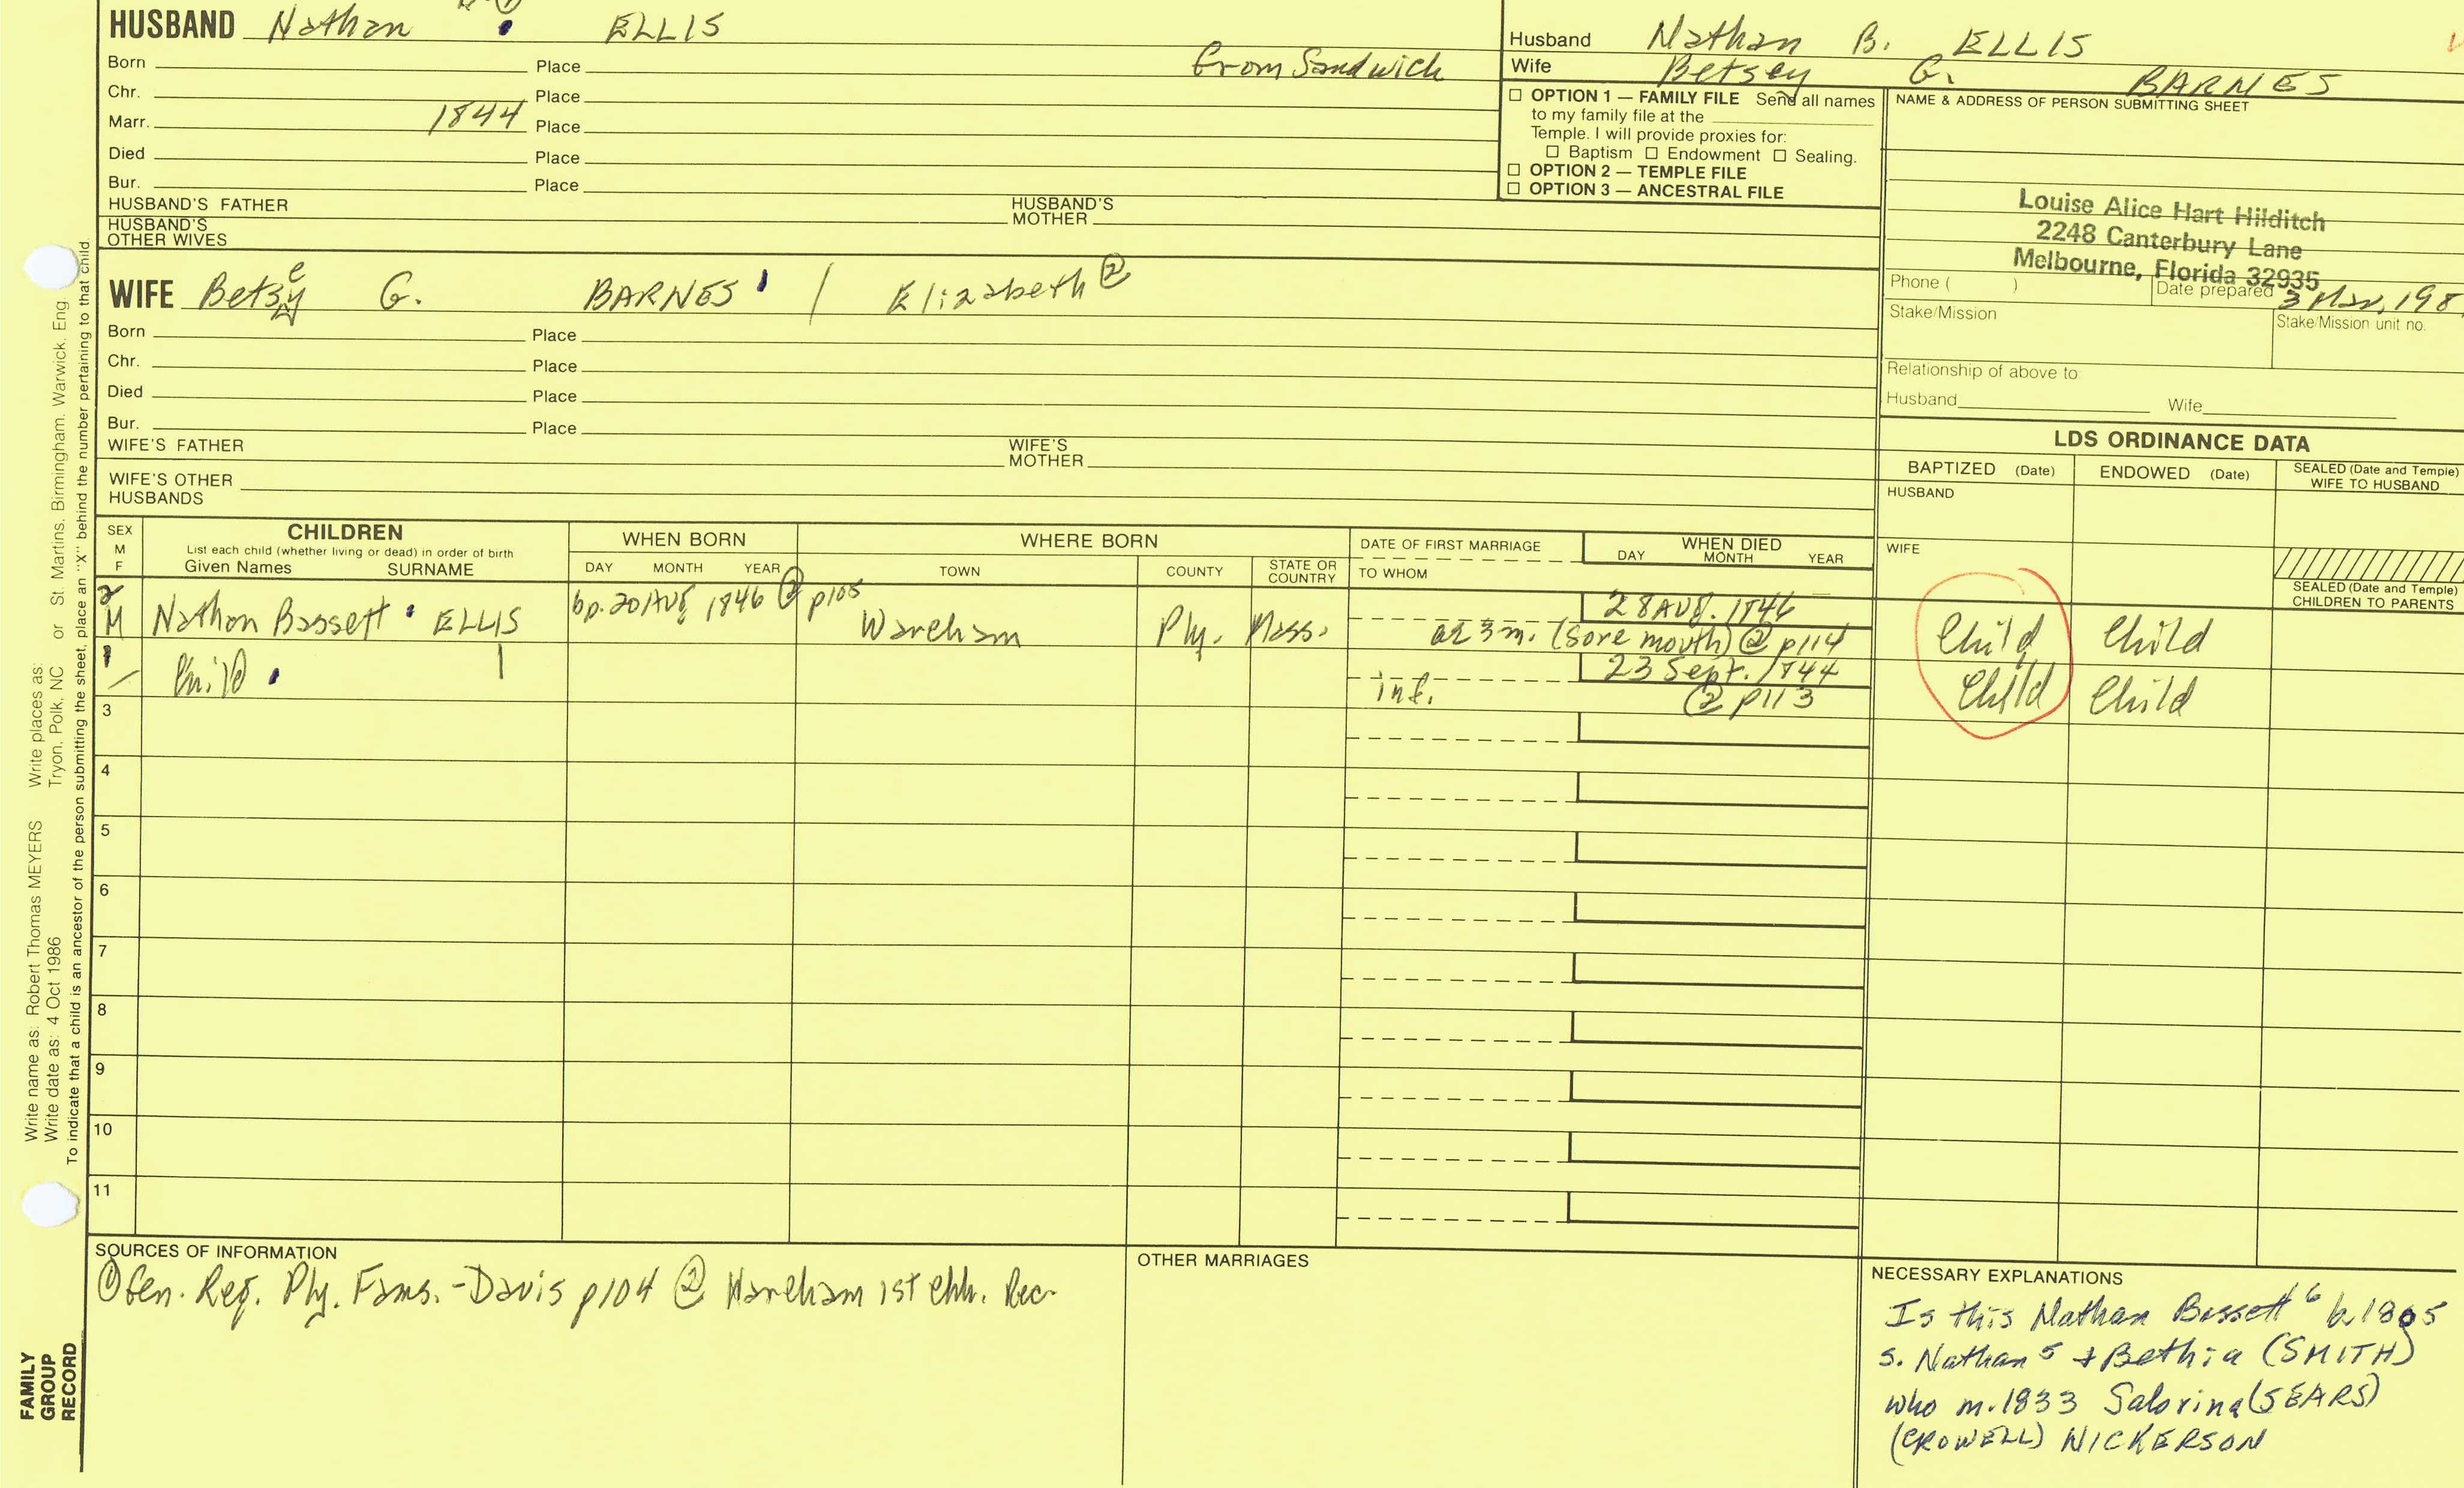 HUSBAND Nathan ELLIS
from Sandwich
Born Place
Chr. Place
Marr. 1844 Place
Died Place
Bur. Place
HUSBAND'S FATHER HUSBAND'S MOTHER
HUSBAND'S OTHER WIVES
Husband Nathan B. ELLIS
Wife Betsey G. BARNES
☐ OPTION 1 — FAMILY FILE Send all names
to my family file at the
Temple. I will provide proxies for:
☐ Baptism ☐ Endowment ☐ Sealing.
☐ OPTION 2 — TEMPLE FILE
☐ OPTION 3 — ANCESTRAL FILE
NAME & ADDRESS OF PERSON SUBMITTING SHEET
Louise Alice Hart Hilditch
2248 Canterbury Lane
Melbourne, Florida 32935
Phone ( ) Date prepared 3 Mar, 198
Stake/Mission Stake/Mission unit no.
Relationship of above to
Husband Wife
WIFE Betsey G. BARNES / Elizabeth ②
Born Place
Chr. Place
Died Place
Bur. Place
WIFE'S FATHER WIFE'S MOTHER
WIFE'S OTHER HUSBANDS
LDS ORDINANCE DATA
BAPTIZED (Date) ENDOWED (Date) SEALED (Date and Temple) WIFE TO HUSBAND
HUSBAND
WIFE
SEALED (Date and Temple) CHILDREN TO PARENTS
SEX M F
CHILDREN
List each child (whether living or dead) in order of birth
Given Names SURNAME
WHEN BORN
DAY MONTH YEAR
WHERE BORN
TOWN COUNTY STATE OR COUNTRY
DATE OF FIRST MARRIAGE
TO WHOM
WHEN DIED
DAY MONTH YEAR
2 M Nathan Bassett ELLIS bp. 20 AUG 1846 ② p105 Wareham Ply. Mass. 28 AUG. 1846
ae 3 m. (sore mouth) ② p114 Child Child
1 Child 23 Sept. 1844
inf. ② p113 Child Child
3
4
5
6
7
8
9
10
11
SOURCES OF INFORMATION
① Gen. Reg. Ply. Fams. - Davis p104 ② Wareham 1st chh. Rec.
OTHER MARRIAGES
NECESSARY EXPLANATIONS
Is this Nathan Bassett 6 b. 1805
s. Nathan 5 + Bethia (SMITH)
who m. 1833 Sabrina (SEARS)
(CROWELL) NICKERSON
Write name as: Robert Thomas MEYERS Write places as:
Write date as: 4 Oct 1986 Tryon, Polk, NC or St. Martins, Birmingham, Warwick, Eng
To indicate that a child is an ancestor of the person submitting the sheet, place an "X" behind the number pertaining to that child.
FAMILY
GROUP
RECORD